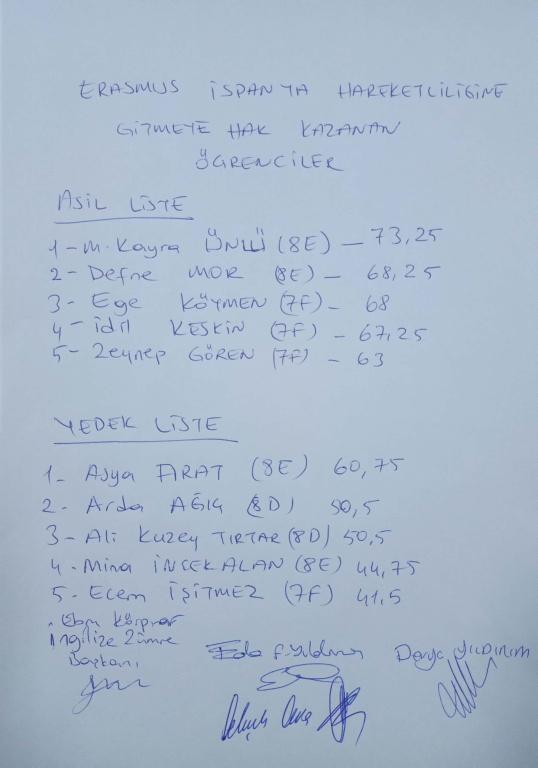 ERASMUS İSPANYA HAREKETLİLİĞİNE
GİTMEYE HAK KAZANAN
ÖĞRENCİLER
ASİL LİSTE
1-M. Kayra ÜNLÜ (8E) - 73,25
2- Defne MOR (8E) - 68,25
3- Ege KÖYMEN (7F) - 68
4- İdil KESKİN (7F) - 67,25
5- Zeynep GÖREN (7F) - 63
YEDEK LİSTE
1- Asya FIRAT (8E) 60,75
2- Arda AĞIÇ (8D) 50,5
3- Ali Kuzey TIRTAR (8D) 50,5
4- Mina İNCEKALAN (8E) 44,75
5- Ecem İŞİTMEZ (7F) 41,5
İngilizce Zümre
Başkanı
Eda F. Yıldırım
Derya YILDIRIM